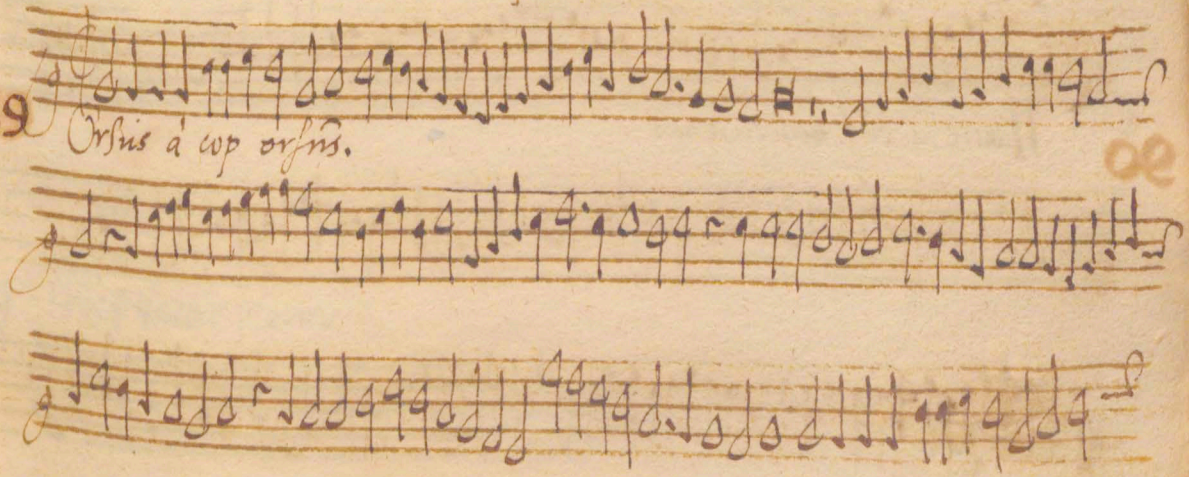 Orsus à cop orsus.